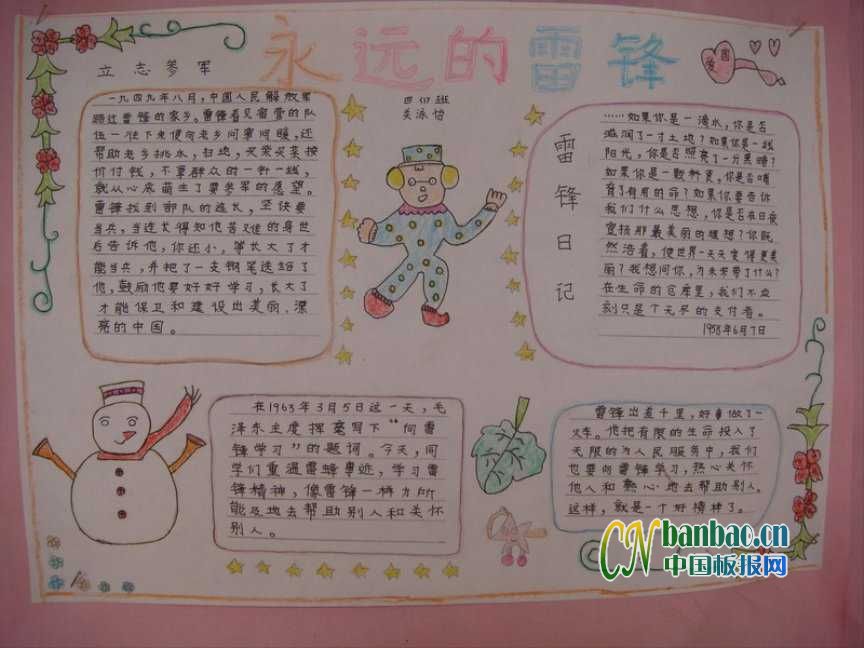 永远的雷锋
立志参军
四(1)班
关泳怡
爱国
一九四九年八月，中国人民解放军
路过雷锋的家乡。雷锋看见宿营的队
伍一住下来便向老乡问寒问暖，还
帮助老乡挑水，扫地，买菜买菜按
价付钱，不拿群众的一针一线，
就从心底萌生了要参军的愿望。
雷锋找到部队的连长，坚决要
当兵，当连长得知他苦难的身世
后告诉他，你还小，等长大了才
能当兵，并把了一支钢笔送给了
他，鼓励他要好好学习，长大了
才能保卫和建设出美丽、漂
亮的中国。
雷锋日记
……如果你是一滴水，你是否
滋润了一寸土地？如果你是一线
阳光，你是否照亮了一分黑暗？
如果你是一颗粮食，你是否哺
育了有用的命？如果你要告诉
我们什么思想，你是否在日夜
宣扬那最美丽的理想？你既
然活着，使世界一天天变得更美
丽？我想问你，为未来带了什么？
在生命的仓库里，我们不应
刻只是个无尽的支付者。
1958年6月7日
在1963年3月5日这一天，毛
泽东主席挥毫写下“向雷
锋学习”的题词。今天，同
学们重温雷锋事迹，学习雷
锋精神，像雷锋一样力所
能及地去帮助别人和关怀
别人。
雷锋出差千里，好事做了一
火车。他把有限的生命投入了
无限的为人民服务中，我们
也要向雷锋学习，热心关怀
他人和热心地去帮助别人。
这样，就是一个好榜样了。
CN banbao.cn
中国板报网